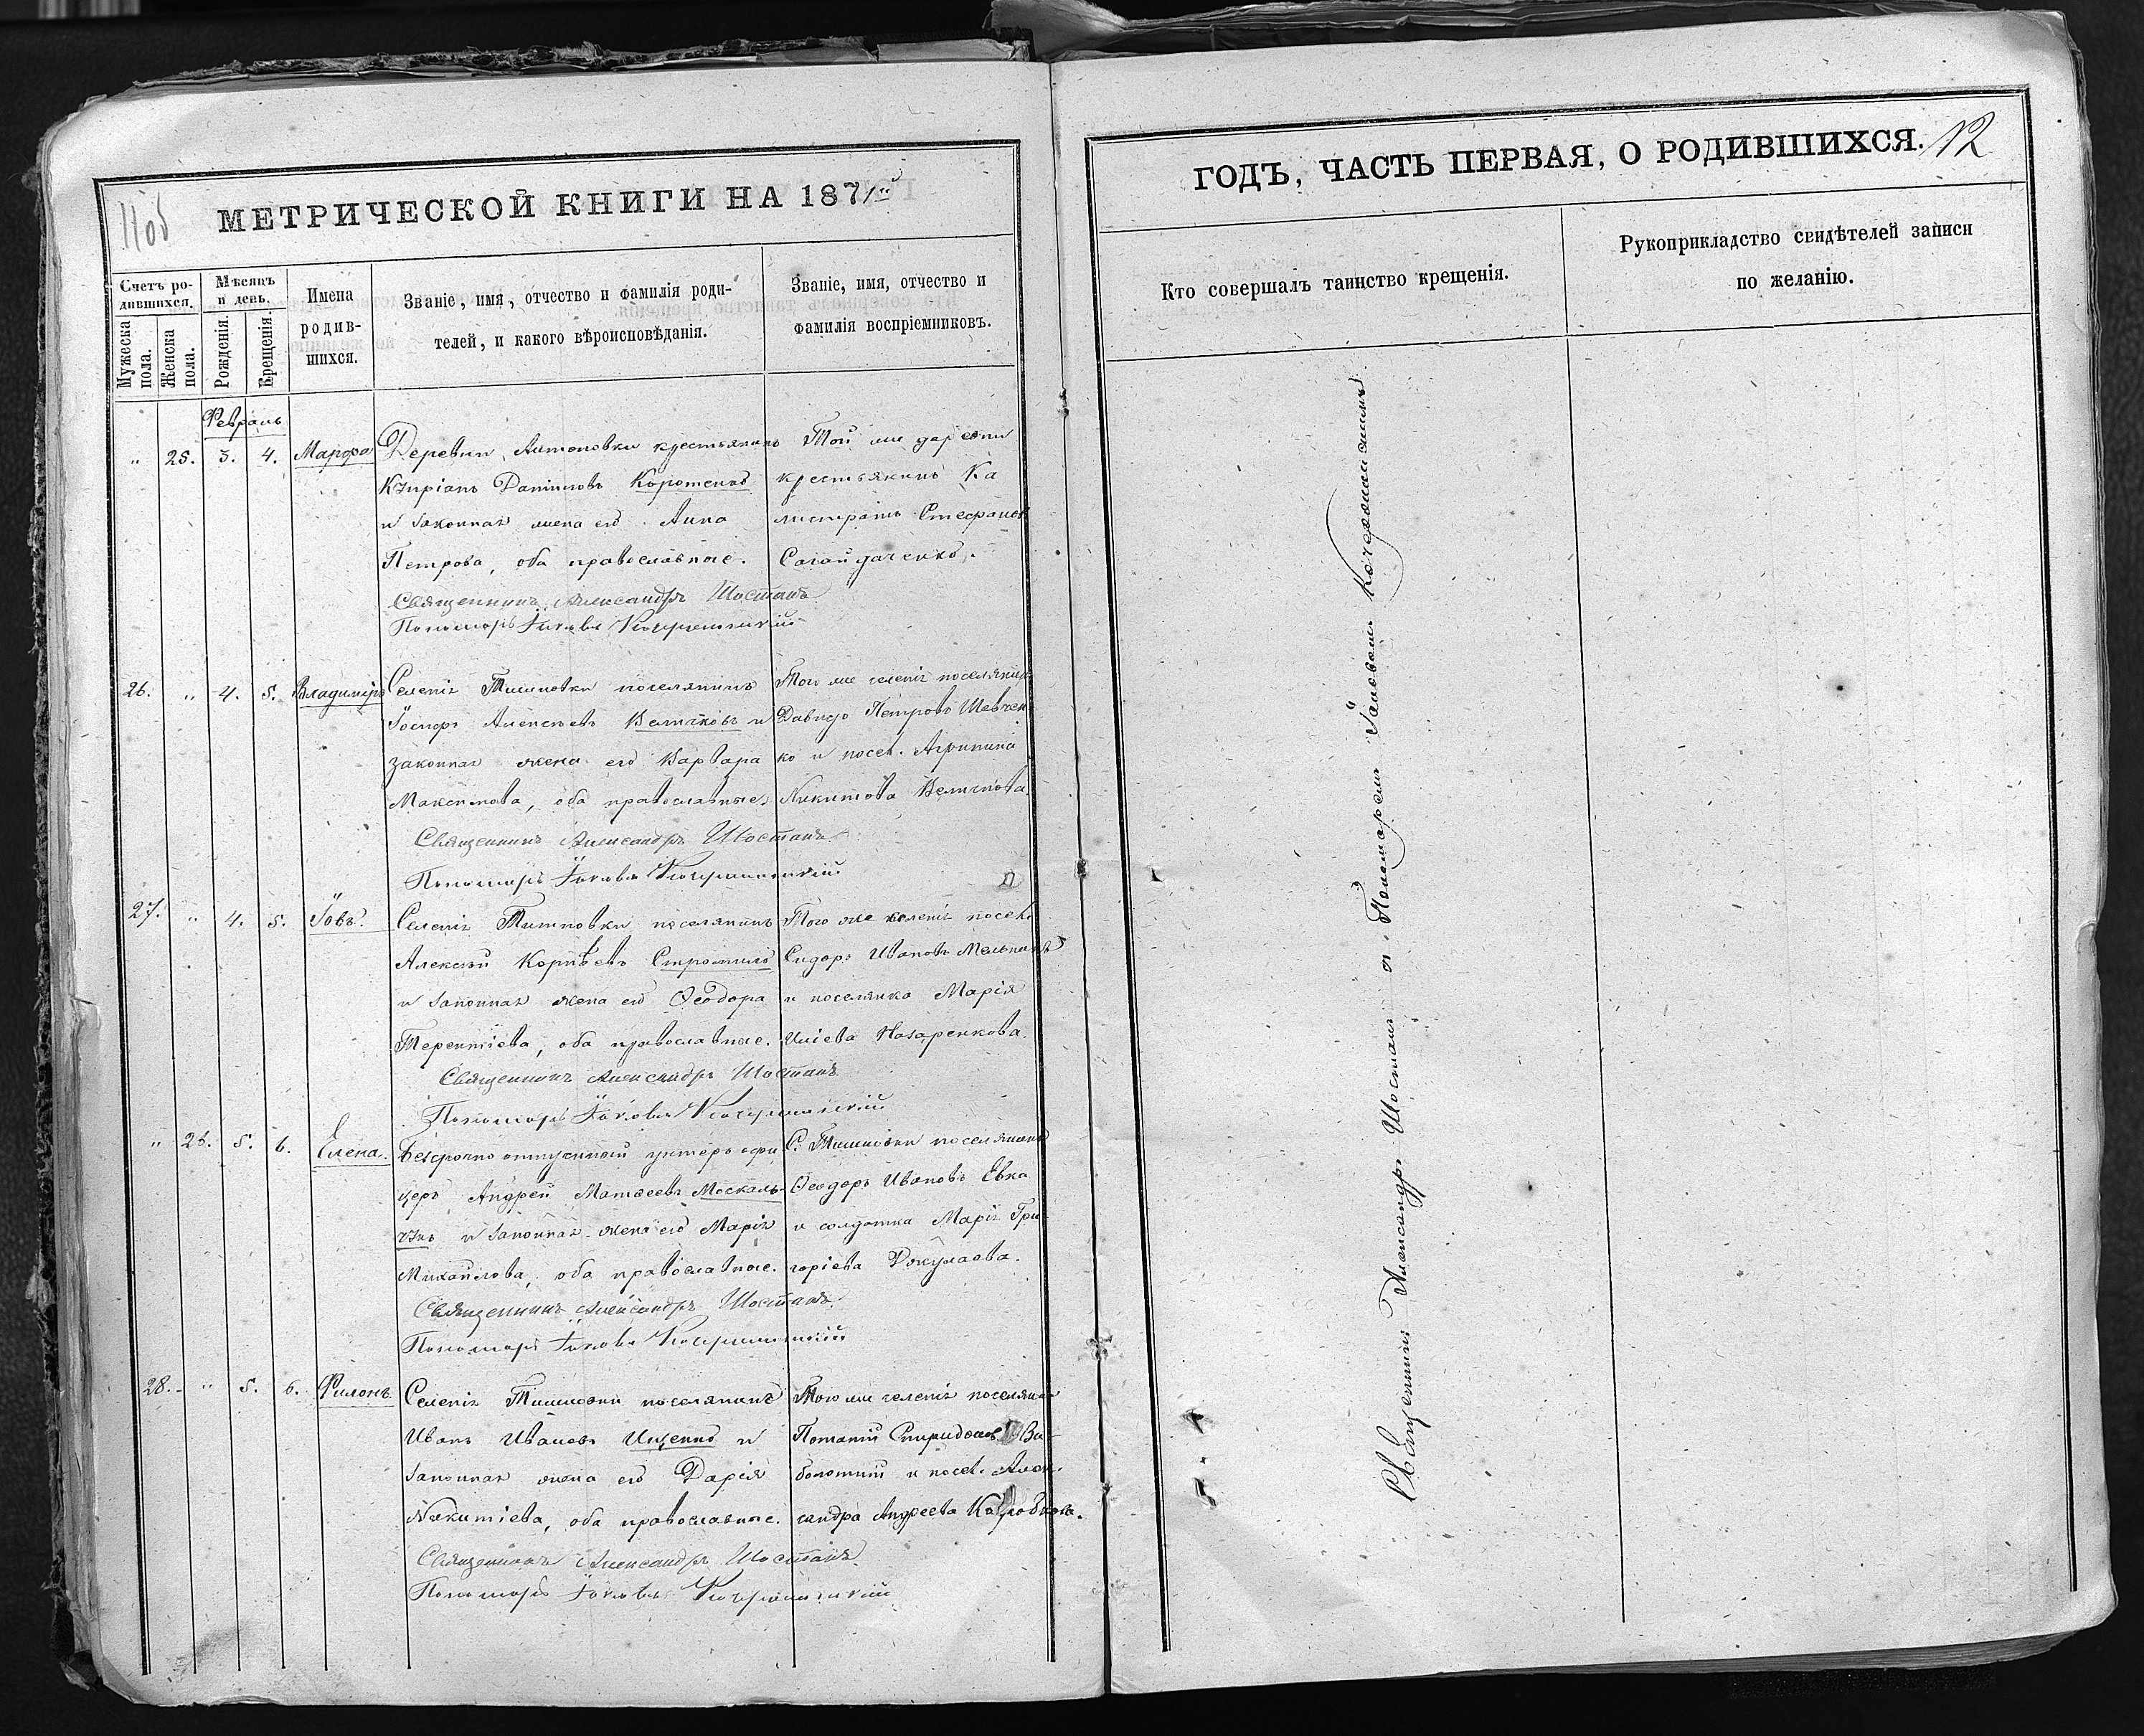 МЕТРИЧЕСКОЙ КНИГИ НА 1871й
Счетъ ро-
дившихся.
Мѣсяцъ
и день.
Мужеска
пола.
Женска
пола.
Рожденія.
Крещенія.
Имена
родив-
шихся.
Званіе, имя, отчество и фамилія роди-
телей, и какого вѣроисповѣданія.
Званіе, имя, отчество и
фамилія воспріемниковъ.
Февраль
„ 25. 3. 4. Марфа
Деревни Антоновки крестьянинъ
Кипріанъ Даниловъ Коротенко
и законная жена его Анна
Петрова, оба православные.
Той же деревни
крестьянинъ Ка
листратъ Стефановъ
Сагайдаченко.
Священникъ Александръ Шостакъ
Пономарь Іаковъ
26. „ 4. 5. Владиміръ
Селенія Тишковки поселянинъ
Іосифъ Алексѣевъ Величковъ и
законная жена его Варвара
Максимова, оба православные
Того же селенія поселянинъ
Давидъ Петровъ Шевчен
ко и посел. Агрипина
Никитова Величкова.
Священникъ Александръ Шостакъ.
Пономарь Іаковъ
27. „ 4. 5. Іовъ.
Селенія Тишковки поселянинъ
Алексѣй Корнѣевъ
и законная жена его Ѳеодора
Терентіева, оба православные.
Того же селенія посел.
Сидоръ Ивановъ Мельникъ
и поселянка Марія
Иліева Назаренкова.
Священникъ Александръ Шостакъ
Пономарь Іаковъ
„ 26. 5. 6. Елена.
Безсрочно отпускной унтеръ офи
церъ Андрей Матвеевъ Москаль-
чукъ и законная жена его Марія
Михайлова, оба православные.
С. Тишковки поселянинъ
Ѳеодоръ Ивановъ
и солдатка Марія Гри-
горіева
Священникъ Александръ Шостакъ.
Пономарь Іаковъ
28. „ 5. 6. Филонъ.
Селенія Тишковки поселянинъ
Иванъ Ивановъ Ищенко и
законная жена его Дарія
Никитіева, оба православные.
Того же селенія поселянинъ
Потапій Спиридоновъ За-
болотній и посел. Алек-
сандра Андреева
Священникъ Александръ Шостакъ.
Пономарь Іаковъ
ГОДЪ, ЧАСТЬ ПЕРВАЯ, О РОДИВШИХСЯ.
12
Кто совершалъ таинство крещенія.
Рукоприкладство свидѣтелей записи
по желанію.
Священникъ Александръ Шостакъ съ Пономаремъ Іаковомъ